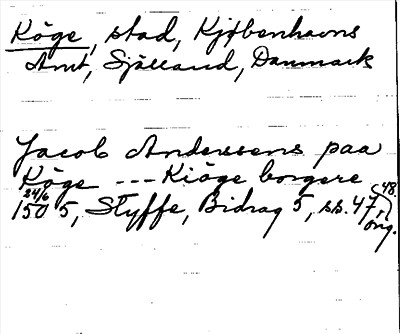 Köge, stad, Kjøbenhavns
Amt, Sjælland, Danmark
Jacob Anderssens paa
Köge --- Kiöge borgere
24/6 1505, Styffe, Bidrag 5, ss. 47, 48.
orig.